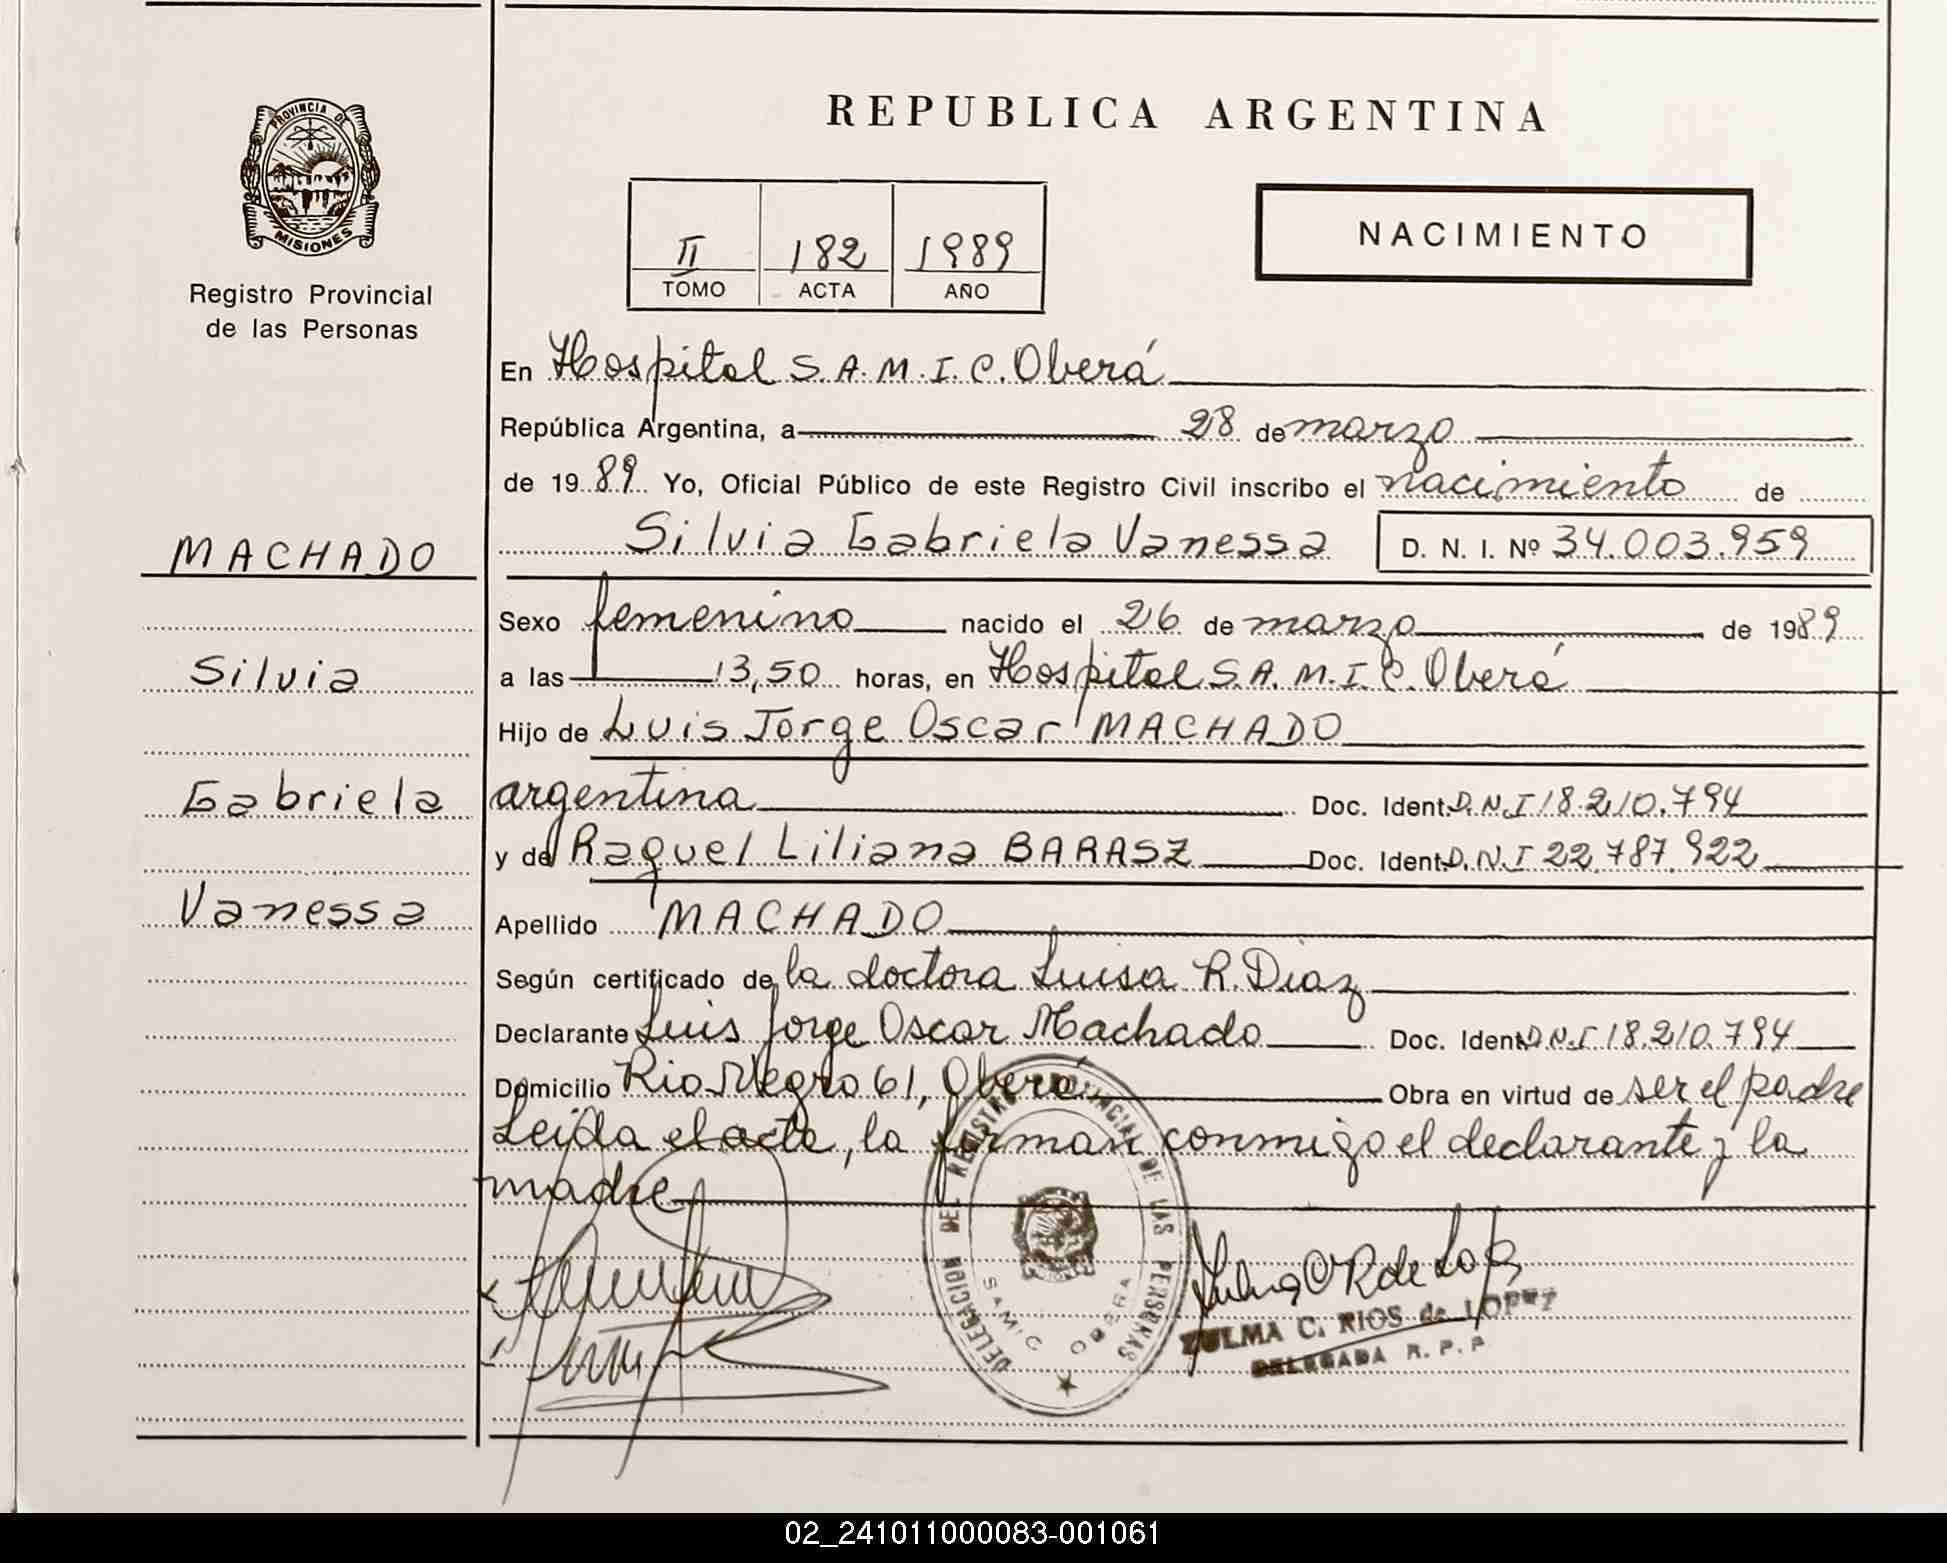 PROVINCIA DE
MISIONES
Registro Provincial
de las Personas
MACHADO
Silvia
Gabriela
Vanessa
REPUBLICA ARGENTINA
II 182 1989
TOMO ACTA AÑO
NACIMIENTO
En Hospital S.A.M.I.C. Oberá
República Argentina, a 28 de marzo
de 1989 Yo, Oficial Público de este Registro Civil inscribo el nacimiento de
Silvia Gabriela Vanessa D. N. I. Nº 34.003.959
Sexo femenino nacido el 26 de marzo de 1989
a las 13,50 horas, en Hospital S.A.M.I.C. Oberá
Hijo de Luis Jorge Oscar MACHADO
argentina Doc. Ident. D.N.I 18.210.794
y de Raquel Liliana BARASZ Doc. Ident. D.N.I 22.787.922
Apellido MACHADO
Según certificado de la doctora Luisa R. Diaz
Declarante Luis Jorge Oscar Machado Doc. Ident. D.N.I 18.210.794
Domicilio Rio Negro 61, Oberá Obra en virtud de ser el padre
Leída el acta, la firman conmigo el declarante y la
madre
DELEGACION DEL REGISTRO PROVINCIAL DE LAS PERSONAS
SAMIC OBERA
ZULMA C. RIOS de LOPEZ
DELEGADA R. P. P.
02_241011000083-001061